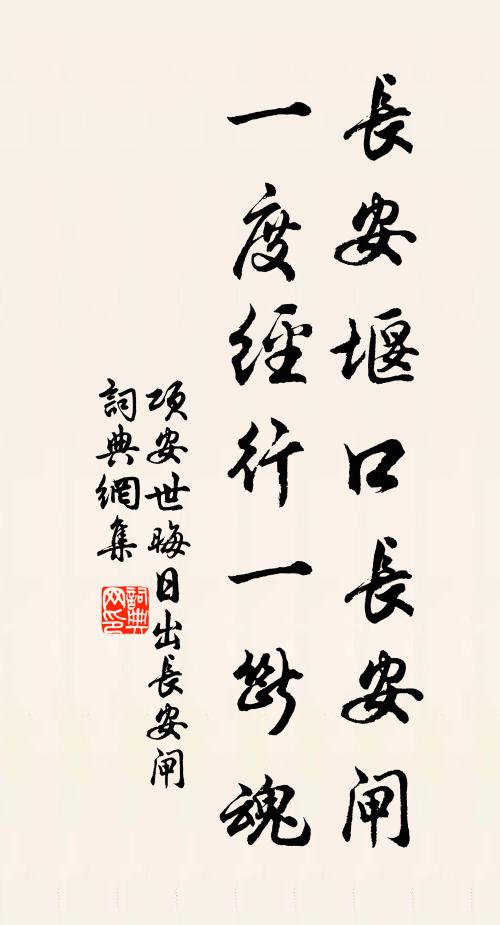 長安堰口長安闸
一度經行一斷魂
项安世晦日出長安闸
詞典網集
詞典网印